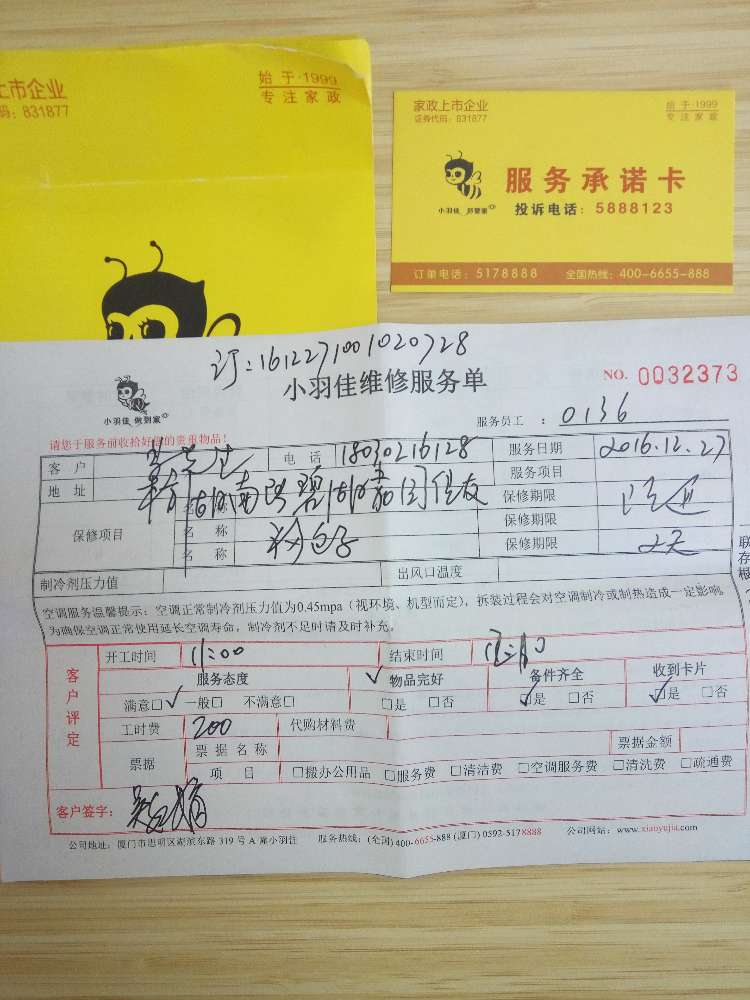 上市企业
码：831877
始于·1999
专注家政
家政上市企业
证券代码：831877
始于·1999
专注家政
服务承诺卡
小羽佳
投诉电话：5888123
订单电话：5178888 全国热线：400-6655-888
订：1612271001020728
小羽佳维修服务单
NO. 0032373
小羽佳 做到家
服务员工：0136
请您于服务前收拾好您的贵重物品！
客户 电话 18030216128 服务日期 2016.12.27
地址 服务项目
保修项目
名称 保修期限
名称 保修期限
名称 保修期限
制冷剂压力值 出风口温度
空调服务温馨提示：空调正常制冷剂压力值为0.45mpa（视环境、机型而定），拆装过程会对空调制冷或制热造成一定影响，
为确保空调正常使用延长空调寿命，制冷剂不足时请及时补充。
联
存
根
客户评定
开工时间 11:00 结束时间
服务态度 物品完好 备件齐全 收到卡片
满意□ 一般□ 不满意□ □是 □否 □是 □否 □是 □否
工时费 200 代购材料费
票据 票据名称 票据金额
项目 □搬办公用品 □服务费 □清洁费 □空调服务费 □清洗费 □疏通费
客户签字：
公司地址：厦门市思明区湖滨东路 319 号 A 廊小羽佳 服务热线：(全国) 400-6655-888 (厦门) 0592-5178888 公司网站：www.xiaoyujia.com